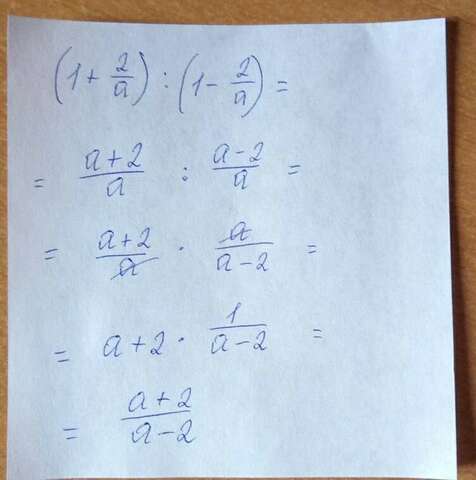 (1 + 2/a) : (1 - 2/a) =
= (a + 2)/a : (a - 2)/a =
= (a + 2)/a · a/(a - 2) =
= a + 2 · 1/(a - 2) =
= (a + 2)/(a - 2)